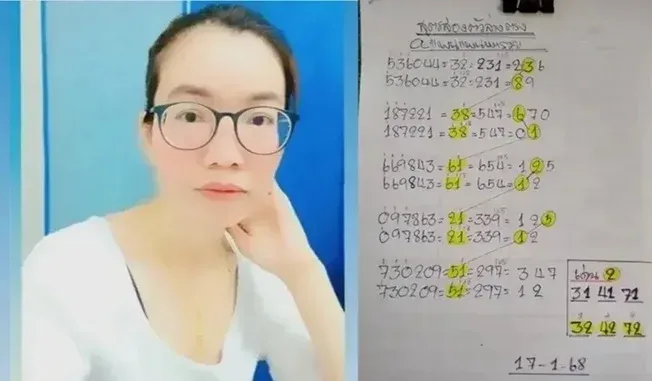 สูตรสองตัวล่างตรง
536044=32=231=236
536044=32=231=89
187221=38=547=670
187221=38=547=01
669843=61=654=125
669843=61=654=12
097863=21=339=125
097863=21=339=12
730209=51=297=347
730209=51=297=12
เด่น 2
31 41 71
32 42 72
17-1-68